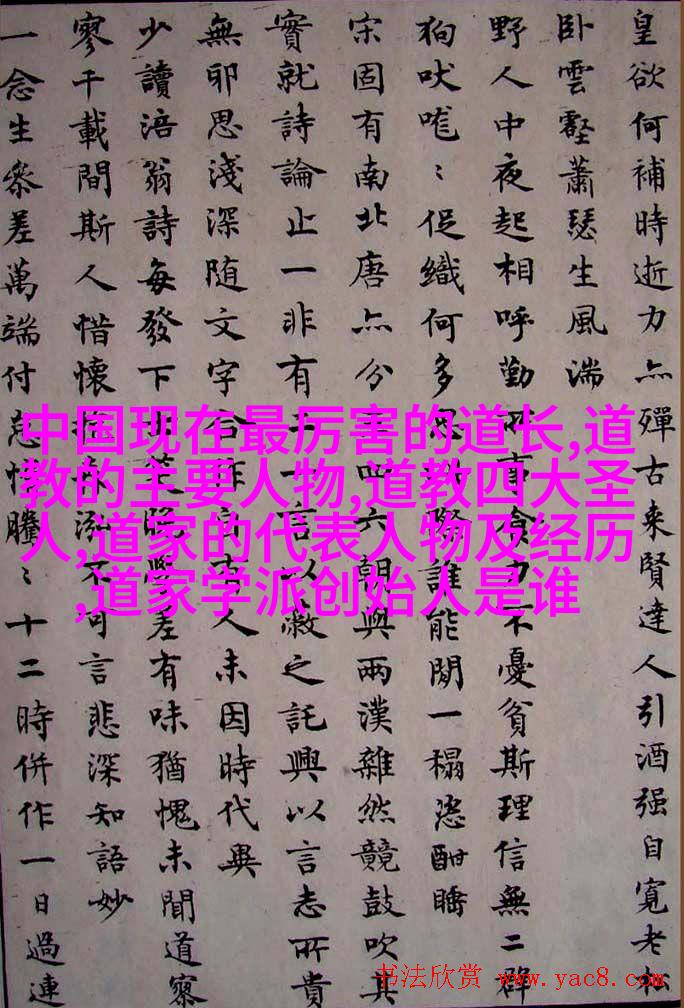 皇欲何補時逝力亦殫古来賢達人引酒强自寬老
卧雲壑蕭瑟生風湍
野人中夜起相呼勤事食力不憂貧斯理信無二群
狗吠嘊〻促織何多思際誰能閒一榻恣酣睡
宋固有南北唐亦分四六朝與兩漢雜然競鼓吹其
實就詩論止一非有二一言以蔽之託興以言志所貴
無邪思淺深随文字人未因時代異
少讀涪翁詩每發下差有味猶愧未聞道寥
寥千載間斯人惜懷泓不可言悲深知語妙
一念生参差萬端付騰〻十二時併作一日過連
中国现在最厉害的道长,道
教的主要人物,道教四大圣
人,道家的代表人物及经历
,道家学派创始人是谁
书法欣赏 www.yac8.com